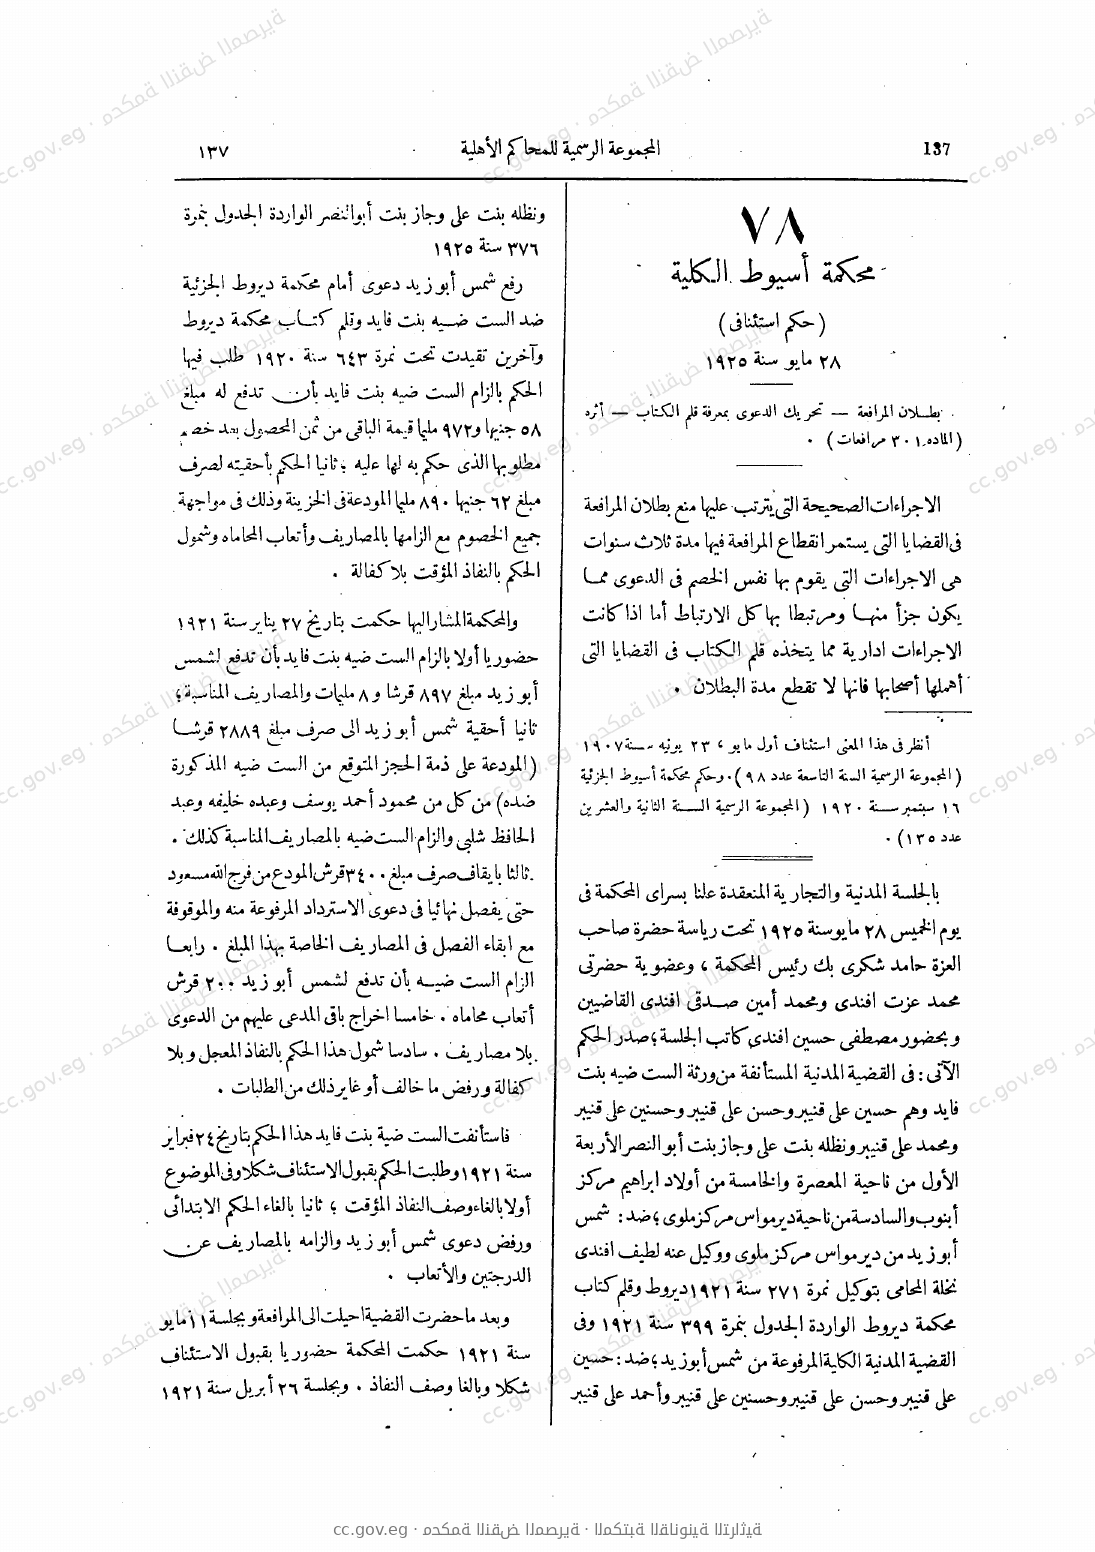 137
المجموعة الرسمية للمحاكم الأهلية
١٣٧
٧٨
محكمة أسيوط الكلية
(حكم استئنافى)
٢٨ مايو سنة ١٩٢٥
بطلان المرافعة — تحريك الدعوى بمعرفة قلم الكتاب — أثره
(المادة ٣٠١ مرافعات) .
الاجراءات الصحيحة التى يترتب عليها منع بطلان المرافعة
فى القضايا التى يستمر انقطاع المرافعة فيها مدة ثلاث سنوات
هى الاجراءات التى يقوم بها نفس الخصم فى الدعوى مما
يكون جزأ منها ومرتبطا بها كل الارتباط أما اذا كانت
الاجراءات ادارية مما يتخذه قلم الكتاب فى القضايا التى
أهملها أصحابها فانها لا تقطع مدة البطلان .
أنظر فى هذا المعنى استئناف أول مايو ، ٢٣ يونيه سنة ١٩٠٧
(المجموعة الرسمية السنة التاسعة عدد ٩٨) . وحكم محكمة أسيوط الجزئية
١٦ سبتمبر سنة ١٩٢٠ (المجموعة الرسمية السنة الثانية والعشرين
عدد ١٣٥) .
بالجلسة المدنية والتجارية المنعقدة علنا بسراى المحكمة فى
يوم الخميس ٢٨ مايو سنة ١٩٢٥ تحت رياسة حضرة صاحب
العزة حامد شكرى بك رئيس المحكمة ، وعضوية حضرتى
محمد عزت افندى ومحمد أمين صدقى افندى القاضيين
وبحضور مصطفى حسين افندى كاتب الجلسة ؛ صدر الحكم
الآتى : فى القضية المدنية المستأنفة من ورثة الست ضيه بنت
فايد وهم حسين على قنيبر وحسن على قنيبر وحسنين على قنيبر
ومحمد على قنيبر ونظله بنت على وجاز بنت أبو النصر الأربعة
الأول من ناحية المعصرة والخامسة من أولاد ابراهيم مركز
أبنوب والسادسة من ناحية ديرمواس مركز ملوى ؛ ضد : شمس
أبو زيد من ديرمواس مركز ملوى ووكيل عنه لطيف افندى
نخلة المحامى بتوكيل نمرة ٢٧١ سنة ١٩٢١ ديروط وقلم كتاب
محكمة ديروط الواردة الجدول بنمرة ٣٩٩ سنة ١٩٢١ وفى
القضية المدنية الكلية المرفوعة من شمس أبو زيد ؛ ضد : حسين
على قنيبر وحسن على قنيبر وحسنين على قنيبر وأحمد على قنيبر
ونظله بنت على وجاز بنت أبو النصر الواردة الجدول بنمرة
٣٧٦ سنة ١٩٢٥
رفع شمس أبو زيد دعوى أمام محكمة ديروط الجزئية
ضد الست ضيه بنت فايد وقلم كتاب محكمة ديروط
وآخرين تقيدت تحت نمرة ٦٤٣ سنة ١٩٢٠ طلب فيها
الحكم بالزام الست ضيه بنت فايد بأن تدفع له مبلغ
٥٨ جنيها و٩٧٢ مليما قيمة الباقى من ثمن المحصول بعد خصم
مطلوبها الذى حكم به لها عليه ؛ ثانيا الحكم بأحقيته لصرف
مبلغ ٦٢ جنيها ٨٩٠ مليما المودعة فى الخزينة وذلك فى مواجهة
جميع الخصوم مع الزامها بالمصاريف وأتعاب المحاماه وشمول
الحكم بالنفاذ المؤقت بلا كفالة .
والمحكمة المشار اليها حكمت بتاريخ ٢٧ يناير سنة ١٩٢١
حضوريا أولا بالزام الست ضيه بنت فايد بأن تدفع لشمس
أبو زيد مبلغ ٨٩٧ قرشا و ٨ مليمات والمصاريف المناسبة ؛
ثانيا أحقية شمس أبو زيد الى صرف مبلغ ٢٨٨٩ قرشا
(المودعة على ذمة الحجز المتوقع من الست ضيه المذكورة
ضده) من كل من محمود أحمد يوسف وعبده خليفه وعبد
الحافظ شلبى والزام الست ضيه بالمصاريف المناسبة كذلك .
ثالثا بايقاف صرف مبلغ ٣٤٠٠ قرش المودع من فرج الله مسعود
حتى يفصل نهائيا فى دعوى الاسترداد المرفوعة منه والموقوفة
مع ابقاء الفصل فى المصاريف الخاصة بهذا المبلغ . رابعا
الزام الست ضيه بأن تدفع لشمس أبو زيد ٢٠٠ قرش
أتعاب محاماه . خامسا اخراج باقى المدعى عليهم من الدعوى
بلا مصاريف . سادسا شمول هذا الحكم بالنفاذ المعجل وبلا
كفالة ورفض ما خالف أو غاير ذلك من الطلبات .
فاستأنفت الست ضية بنت فايد هذا الحكم بتاريخ ٢٤ فبراير
سنة ١٩٢١ وطلبت الحكم بقبول الاستئناف شكلا وفى الموضوع
أولا بالغاء وصف النفاذ المؤقت ؛ ثانيا بالغاء الحكم الابتدائى
ورفض دعوى شمس أبو زيد والزامه بالمصاريف عن
الدرجتين والأتعاب .
وبعد ما حضرت القضية احيلت الى المرافعة وبجلسة ١١ مايو
سنة ١٩٢١ حكمت المحكمة حضوريا بقبول الاستئناف
شكلا وبالغا وصف النفاذ . وبجلسة ٢٦ أبريل سنة ١٩٢١
cc.gov.eg · محكمة النقض المصرية · المكتبة القانونية التراثية